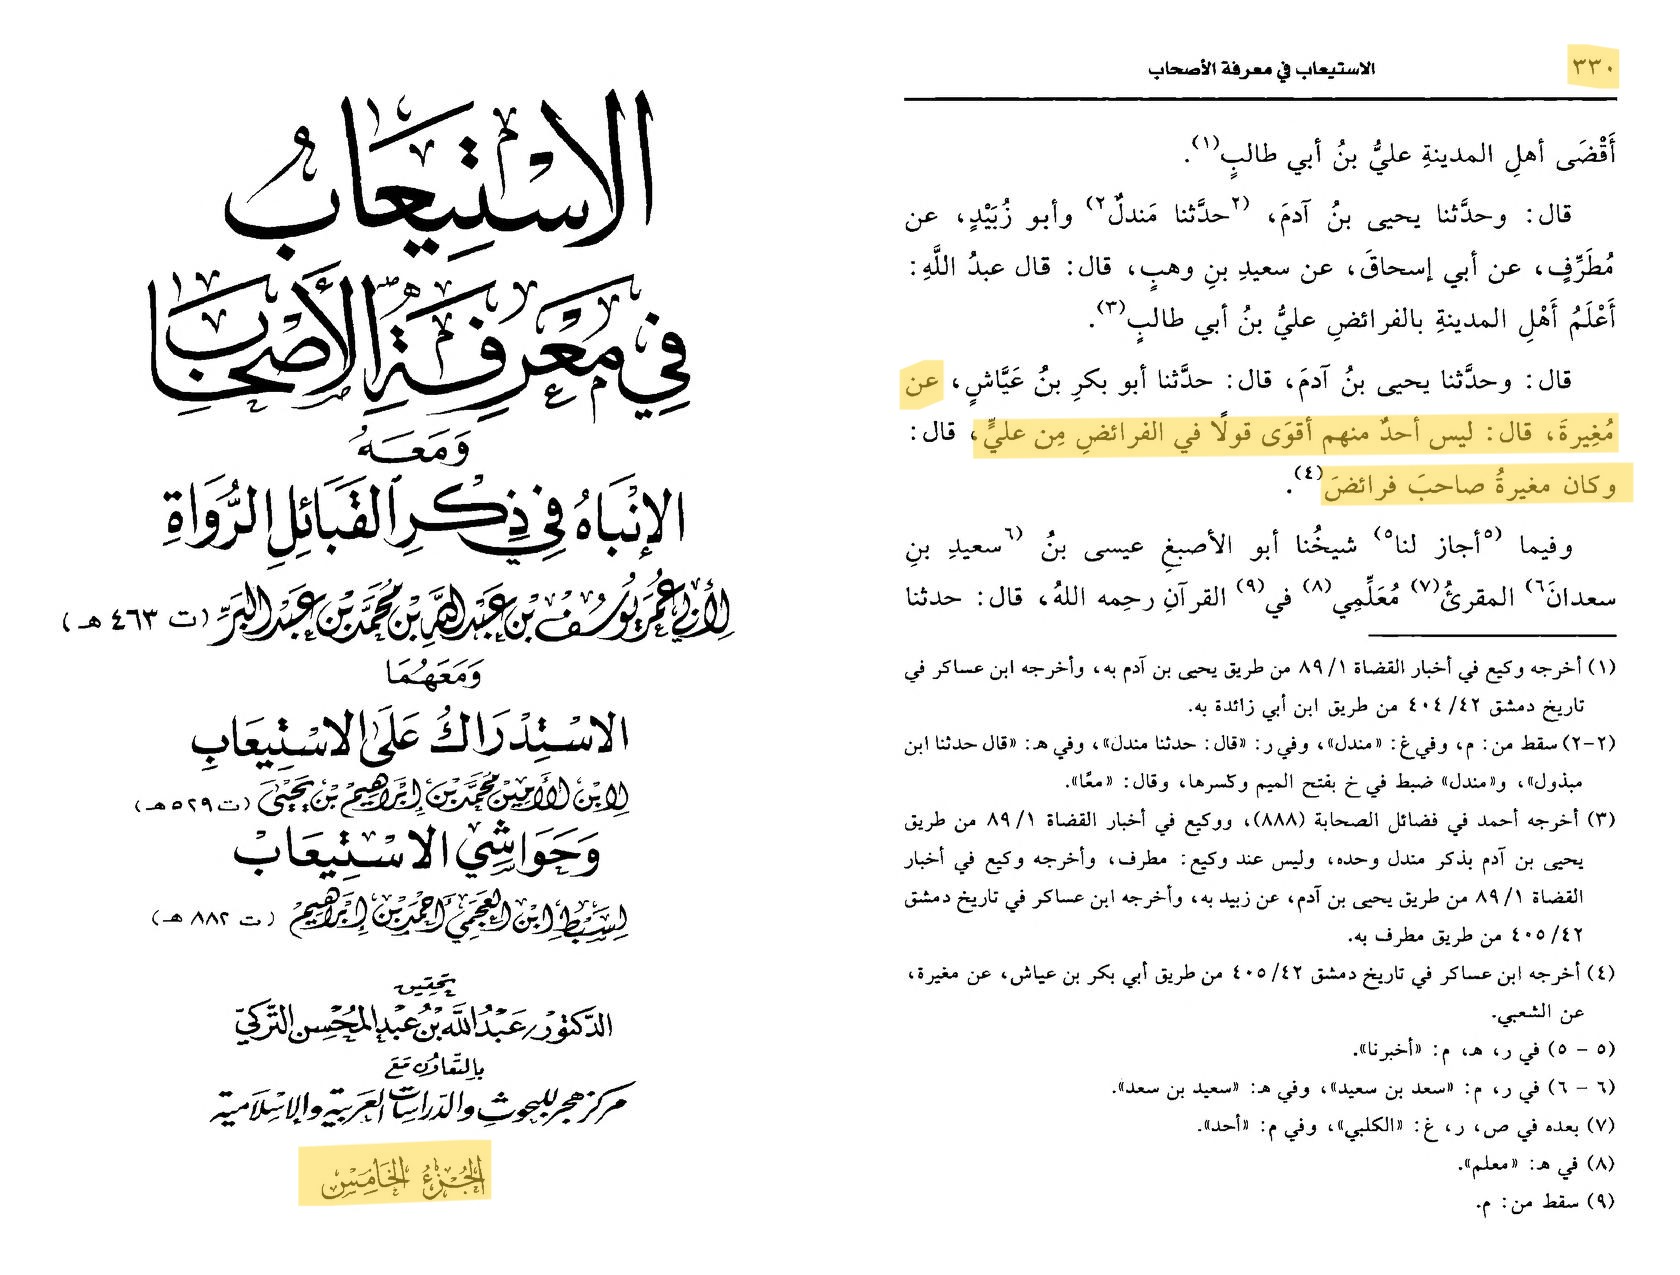 الاستيعاب
في معرفة الأصحاب
ومعه
الإنباه في ذكر القبائل الرواة
لأبي عمر يوسف بن عبد الله بن محمد بن عبد البر (ت ٤٦٣ هـ)
ومعهما
الاستدراك على الاستيعاب
لابن الأمين محمد بن إبراهيم بن يحيى (ت ٥٢٩ هـ)
وحواشي الاستيعاب
لسبط ابن العجمي أحمد بن إبراهيم (ت ٨٨٢ هـ)
تحقيق
الدكتور/عبد الله بن عبد المحسن التركي
بالتعاون مع
مركز هجر للبحوث والدراسات العربية والإسلامية
الجزء الخامس
٣٣٠ الاستيعاب في معرفة الأصحاب
أَقْضَى أهلِ المدينةِ عليُّ بنُ أبي طالبٍ(١).
قال: وحدَّثنا يحيى بنُ آدمَ، (٢حدَّثنا مَندلٌ٢) وأبو زُبَيْدٍ، عن
مُطَرِّفٍ، عن أبي إسحاقَ، عن سعيدِ بنِ وهبٍ، قال: قال عبدُ اللَّهِ:
أَعْلَمُ أَهْلِ المدينةِ بالفرائضِ عليُّ بنُ أبي طالبٍ(٣).
قال: وحدَّثنا يحيى بنُ آدمَ، قال: حدَّثنا أبو بكرِ بنُ عَيَّاشٍ، عن
مُغِيرةَ، قال: ليس أحدٌ منهم أقوَى قولًا في الفرائضِ مِن عليٍّ، قال:
وكان مغيرةُ صاحبَ فرائضَ(٤).
وفيما (٥أجاز لنا٥) شيخُنا أبو الأصبغِ عيسى بنُ (٦سعيدِ بنِ
سعدانَ٦) المقرئُ(٧) مُعَلِّمِي(٨) في(٩) القرآنِ رحِمه اللهُ، قال: حدثنا
(١) أخرجه وكيع في أخبار القضاة ٨٩/١ من طريق يحيى بن آدم به، وأخرجه ابن عساكر في
تاريخ دمشق ٤٠٤/٤٢ من طريق ابن أبي زائدة به.
(٢-٢) سقط من: م، وفي غ: «مندل»، وفي ر: «قال: حدثنا مندل»، وفي هـ: «قال حدثنا ابن
مبذول»، و«مندل» ضبط في خ بفتح الميم وكسرها، وقال: «معًا».
(٣) أخرجه أحمد في فضائل الصحابة (٨٨٨)، ووكيع في أخبار القضاة ٨٩/١ من طريق
يحيى بن آدم بذكر مندل وحده، وليس عند وكيع: مطرف، وأخرجه وكيع في أخبار
القضاة ٨٩/١ من طريق يحيى بن آدم، عن زبيد به، وأخرجه ابن عساكر في تاريخ دمشق
٤٠٥/٤٢ من طريق مطرف به.
(٤) أخرجه ابن عساكر في تاريخ دمشق ٤٠٥/٤٢ من طريق أبي بكر بن عياش، عن مغيرة،
عن الشعبي.
(٥ - ٥) في ر، هـ، م: «أخبرنا».
(٦ - ٦) في ر، م: «سعد بن سعيد»، وفي هـ: «سعيد بن سعد».
(٧) بعده في ص، ر، غ: «الكلبي»، وفي م: «أحد».
(٨) في هـ: «معلم».
(٩) سقط من: م.